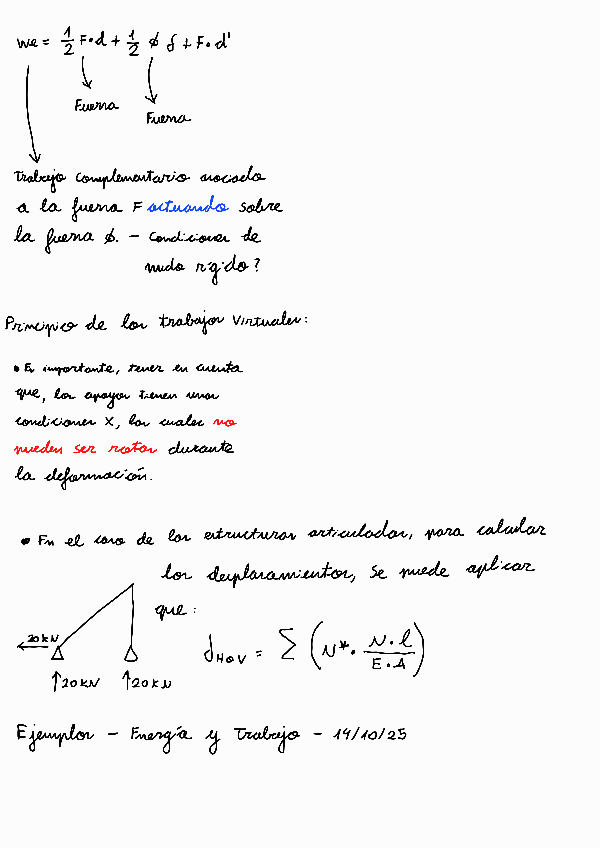 We = 1/2 F·d + 1/2 ϕ δ + F·d'
Fuerza
Fuerza
Trabajo complementario asociado
a la fuerza F actuando sobre
la fuerza ϕ. - Condiciones de
nudo rígido?
Principio de los trabajos Virtuales:
• Es importante, tener en cuenta
que, los apoyos tienen unas
condiciones X, las cuales no
pueden ser rotas durante
la deformación.
• En el caso de las estructuras articuladas, para calcular
los desplazamientos, se puede aplicar
que:
20 kN
↑20 kN ↑20 kN
δ H o V = Σ (N*· N·l / E·A)
Ejemplos - Energía y Trabajo - 14/10/25